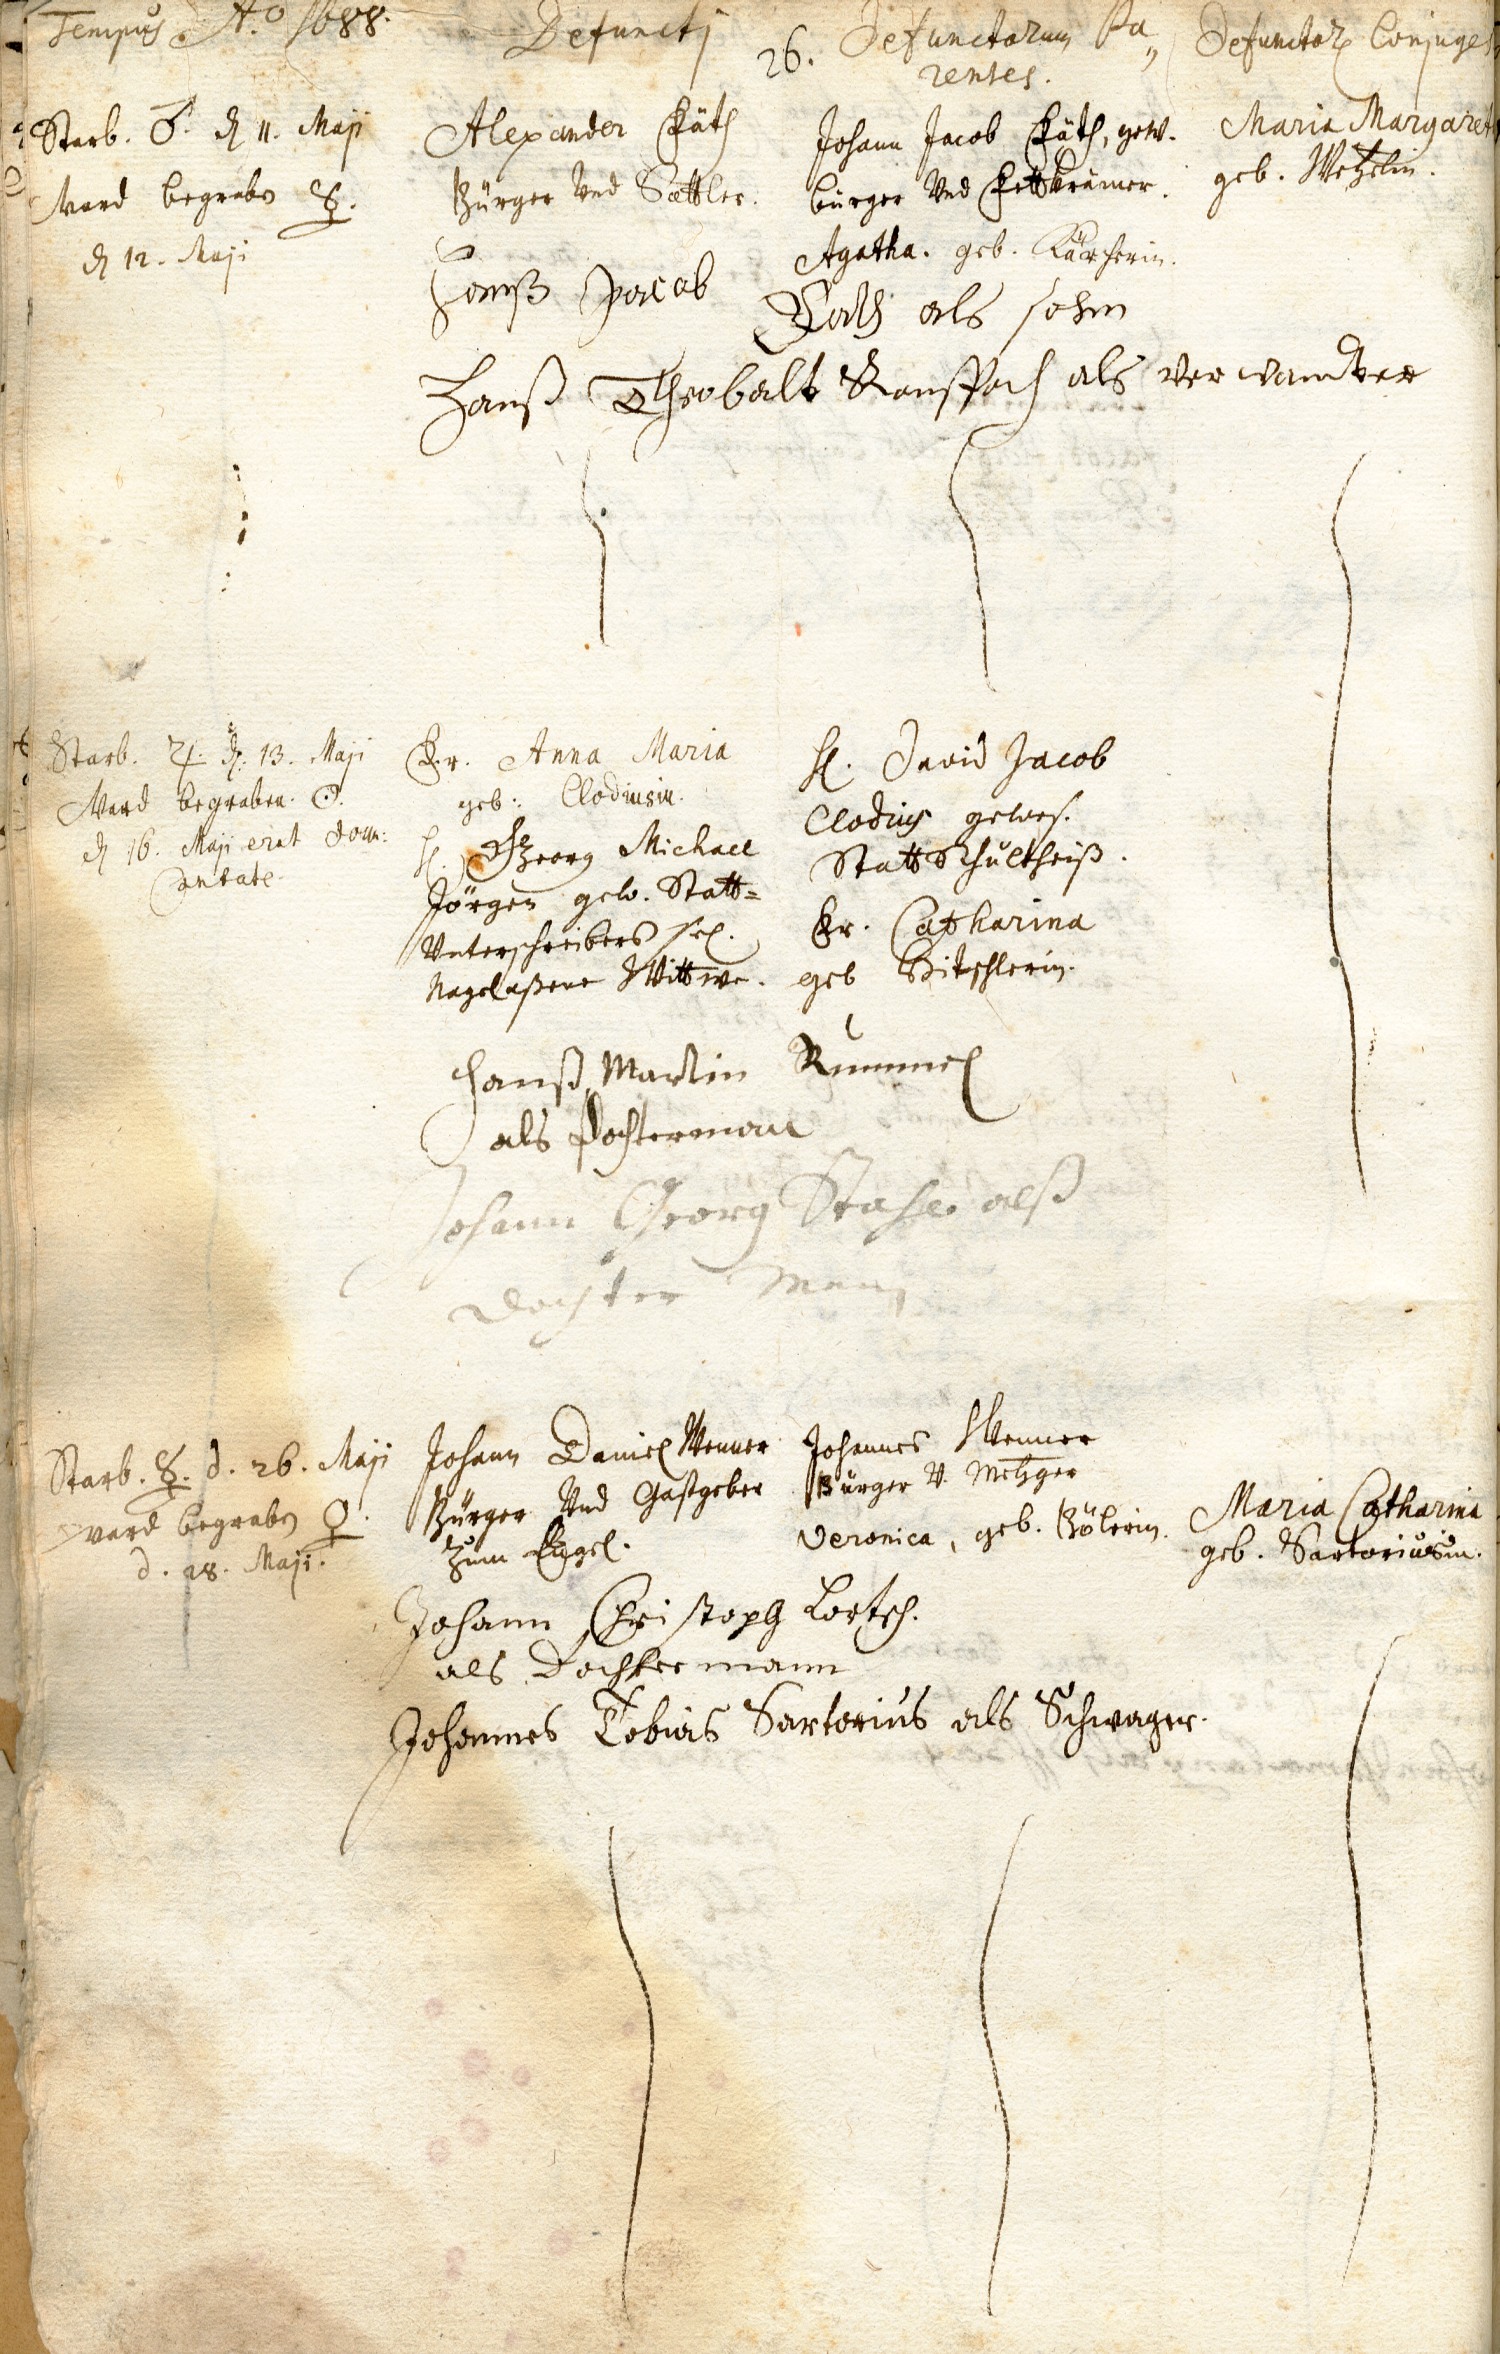 Tempus A.o 1688.
Defuncti
26.
Defunctorum Pa„
rentes.
Defunctor. Conjuges
Starb. ♂. d 11. Maji
Ward begraben ☿.
d 12. Maji
Alexander Räth
Bürger Und Sattler.
Johann Jacob Räth, gew.
bürger Und Fettkrämer.
Agatha. geb. Kärcherin.
Maria Margaret
geb. Wetzelin.
Hanß Jacob Räth als sohn
Hanß Theobalt als verwandter
Starb. ♃. d. 13. Maji
Ward begraben. ☉.
d 16. Maji erat dom:
Cantate.
Fr. Anna Maria
geb: Clodiusin.
H. Georg Michael
Jörgen gew. Statt=
Unterschreibers sel.
Nagelaßene Wittwe.
H. David Jacob
Clodius gewes.
Statt Schultheiß.
Fr. Catharina
geb Bitschlerin.
Hanß Martin Rummel
als Dochterman
Johann Georg alß
Dochter Man
Starb. ☿. d. 26. Maji
ward begraben ♀.
d. 28. Maji.
Johann Daniel Wenner
Bürger Und Gastgeber
Zum Engel.
Johannes Wenner
Bürger V. Metzger
Veronica, geb. Bölerin.
Maria Catharina
geb. Sartoriusin.
Johann Christoph
als Dochtermann
Johannes Tobias Sartorius als Schwager.